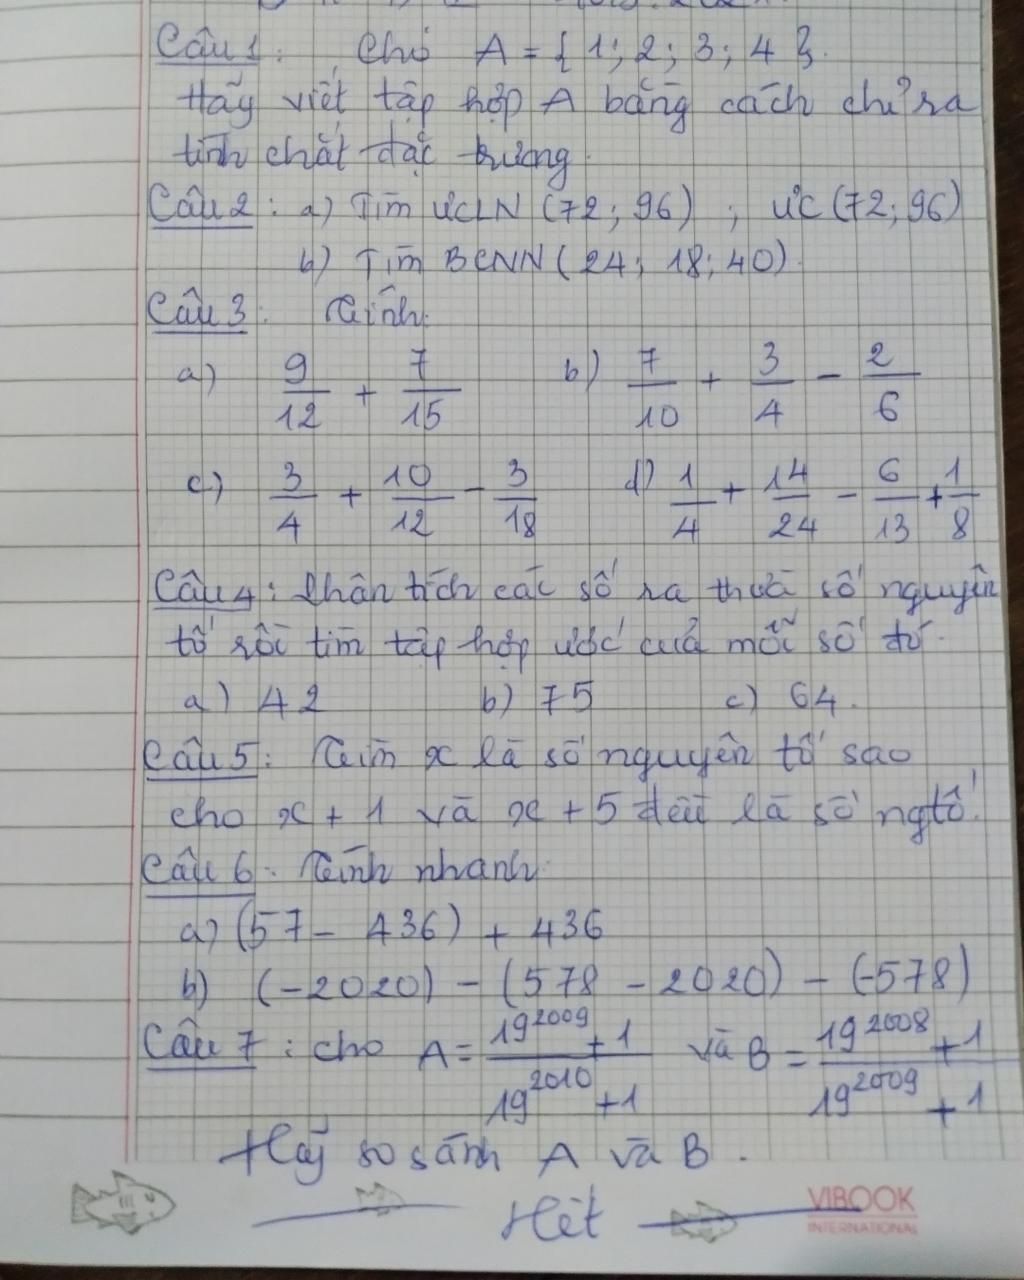 Câu 1: Cho A = { 1; 2; 3; 4 }.
Hãy viết tập hợp A bằng cách chỉ ra
tính chất đặc trưng.
Câu 2: a) Tìm ƯCLN (72; 96) ; ƯC (72; 96)
b) Tìm BCNN (24; 18; 40).
Câu 3: Tính:
a) 9/12 + 7/15 b) 7/10 + 3/4 - 2/6
c) 3/4 + 10/12 - 3/18 d) 1/4 + 14/24 - 6/13 + 1/8
Câu 4: Phân tích các số ra thừa số nguyên
tố rồi tìm tập hợp ước của mỗi số đó.
a) 42 b) 75 c) 64.
Câu 5: Tìm x là số nguyên tố sao
cho x + 1 và x + 5 đều là số ngtố.
Câu 6: Tính nhanh:
a) (57 - 436) + 436
b) (-2020) - (578 - 2020) - (-578)
Câu 7: cho A = 19^2009 + 1 / 19^2010 + 1 và B = 19^2008 + 1 / 19^2009 + 1
Hãy so sánh A và B.
Hết
VIBOOK
INTERNATIONAL